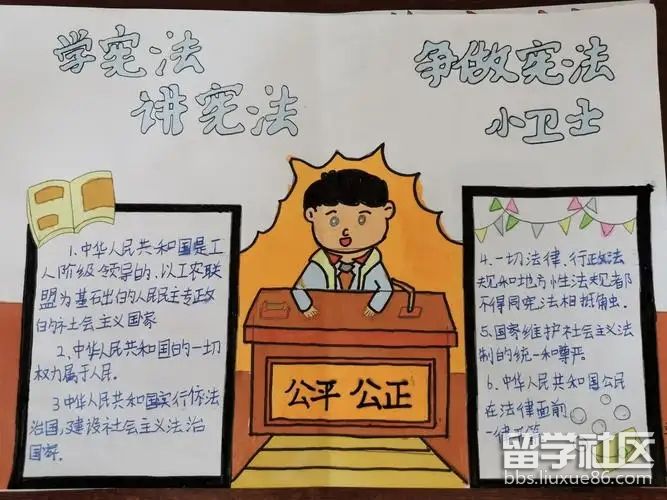 学宪法
讲宪法
争做宪法
小卫士
1.中华人民共和国是工
人阶级领导的、以工农联
盟为基石出的人民民主专政
的社会主义国家
2.中华人民共和国的一切
权力属于人民.
3中华人民共和国实行依法
治国,建设社会主义法治
国家.
公平 公正
4.一切法律、行政法
规和地方性法规都
不得同宪法相抵触.
5.国家维护社会主义法
制的统一和尊严
6.中华人民共和国公民
在法律面前
一律平等
留学社区
bbs.liuxue86.com